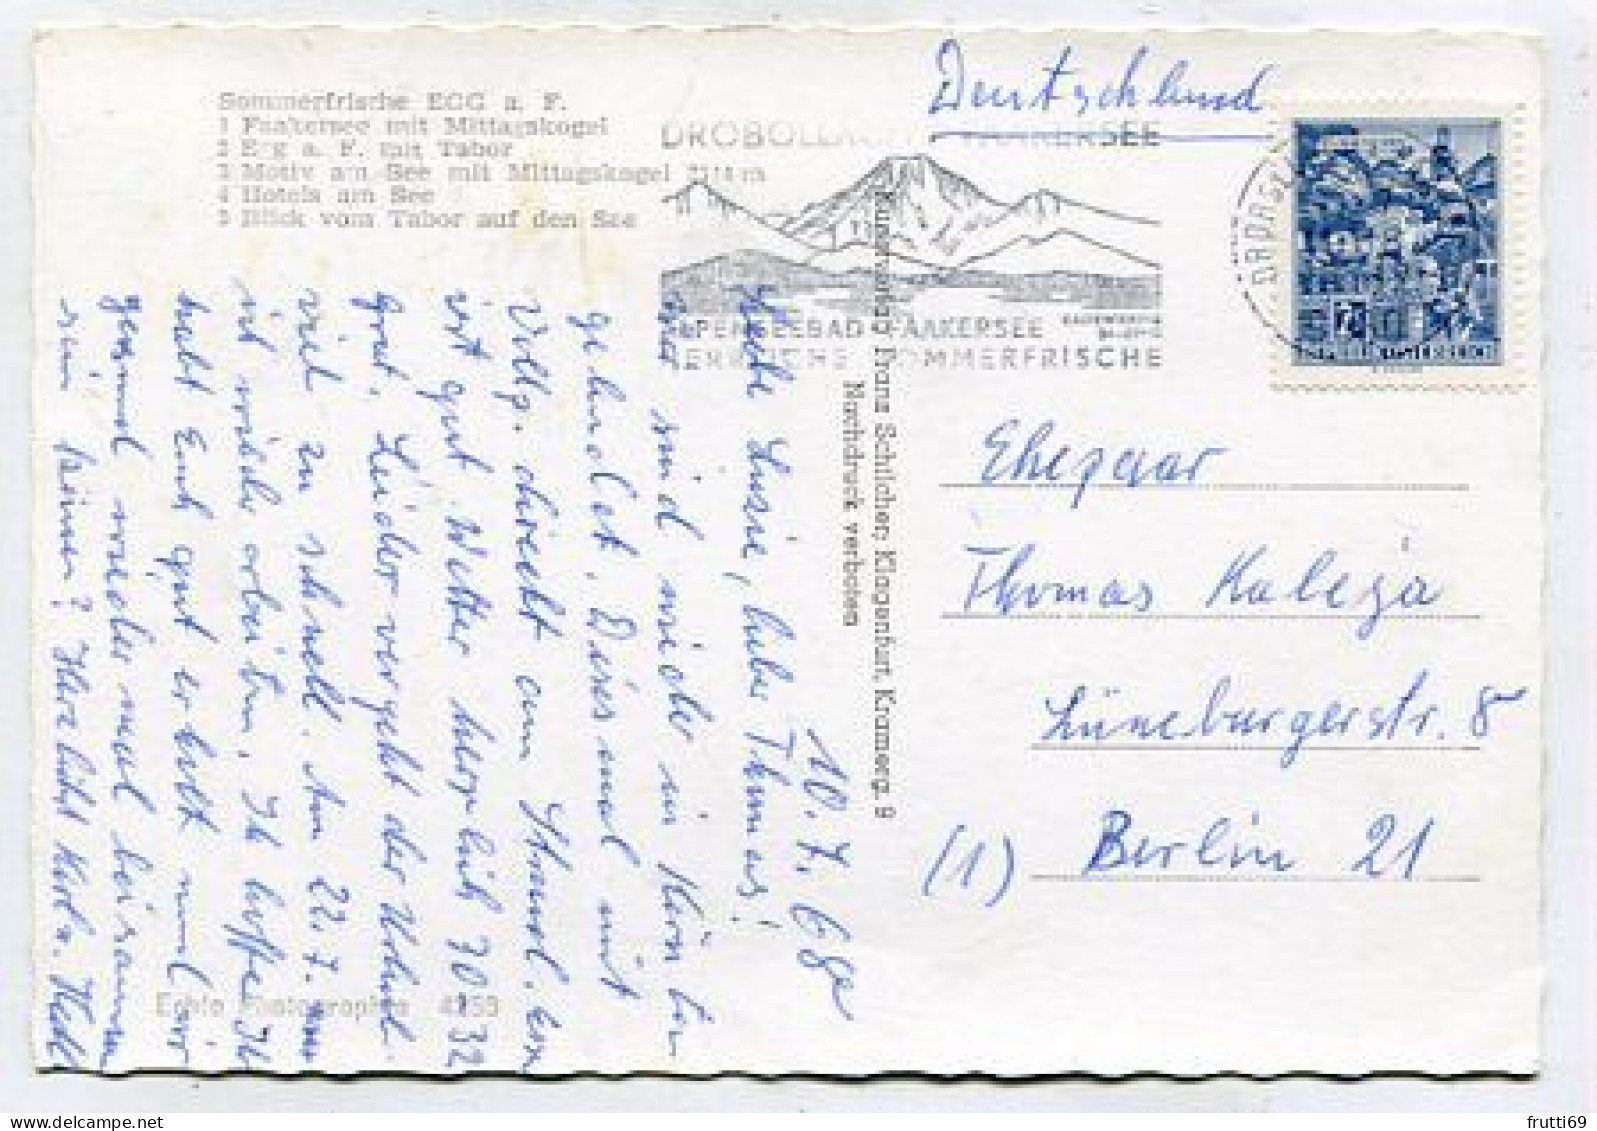 Sommerfrische EGG a. F.
1 Faakersee mit Mittagskogel
2 Egg a. F. mit Tabor
3 Motiv am See mit Mittagskogel
4 Hotels am See
5 Blick vom Tabor auf den See
Deutschland
ALPENSEEBAD FAAKERSEE
HERRLICHE SOMMERFRISCHE
Franz Schilcher, Klagenfurt, Kramerg. 9
Nachdruck verboten
10. 7. 68
Liebe Lussie, lieber Thomas!
sind wieder in Kärnten
gelandet. Diesmal mit
Vollp. direkt am Strand.
ist gut. Wetter herrlich 30-32
grad. Leider vergeht der Urlaub
viel zu schnell. Am 22.7.
ist wieder arbeiten. Ich hoffe Ihr
habt Euch gut erholt und wir
wieder mal beisammen
sein können? Herzlichst
Echte Photographie 4253
Ehepaar
Thomas Kaleja
Lüneburgerstr. 8
(1) Berlin 21
frutti69